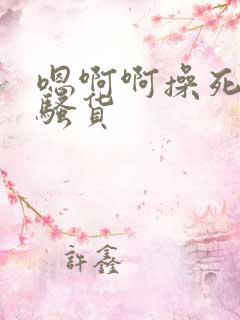 嗯啊啊操死
骚货
許鑫